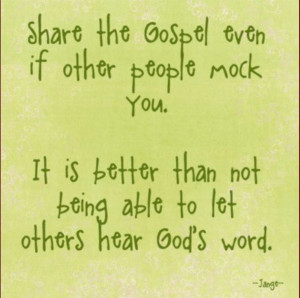 Share the Gospel even
if other people mock
you.
It is better than not
being able to let
others hear God's word.
~Jange~